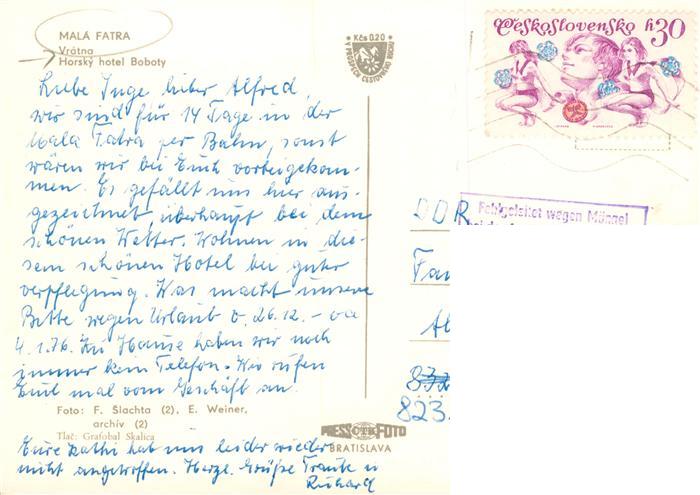 MALÁ FATRA
Vrátna
Horský hotel Boboty
Kčs 0,20
V PROSPECH CESTOVNÉHO RUCHU
Československo h30
Liebe Inge lieber Alfred,
wir sind für 14 Tage in der
Mala Fatra per Bahn, sonst
wären wir bei Euch vorbeigekom-
men. Es gefällt uns hier aus-
gezeichnet überhaupt bei dem
schönen Wetter. Wohnen in die-
sem schönen Hotel bei guter
verpflegung. Was macht unsere
Bitte wegen Urlaub v. 26.12. - ca
4.1.76. Zu Hause haben wir noch
immer kein Telefon. Wir rufen
Euch mal vom Geschäft an.
Foto: F. Šlachta (2), E. Weiner,
archív (2)
Tlač: Grafobal Skalica
Eure Kathi hab uns leider wieder
nicht angetroffen. Herzl. Grüße Traute u
Richard
PRESS ČTK FOTO
BRATISLAVA
DDR
Fehlgeleitet wegen Mängel
Fam
823.